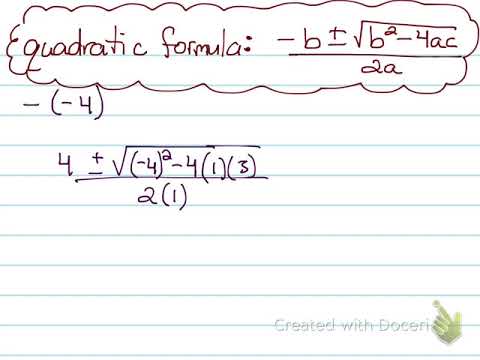 quadratic formula: -b ± √(b² - 4ac) / 2a
- (-4)
4 ± √((-4)² - 4(1)(3)) / 2(1)
Created with Doceri